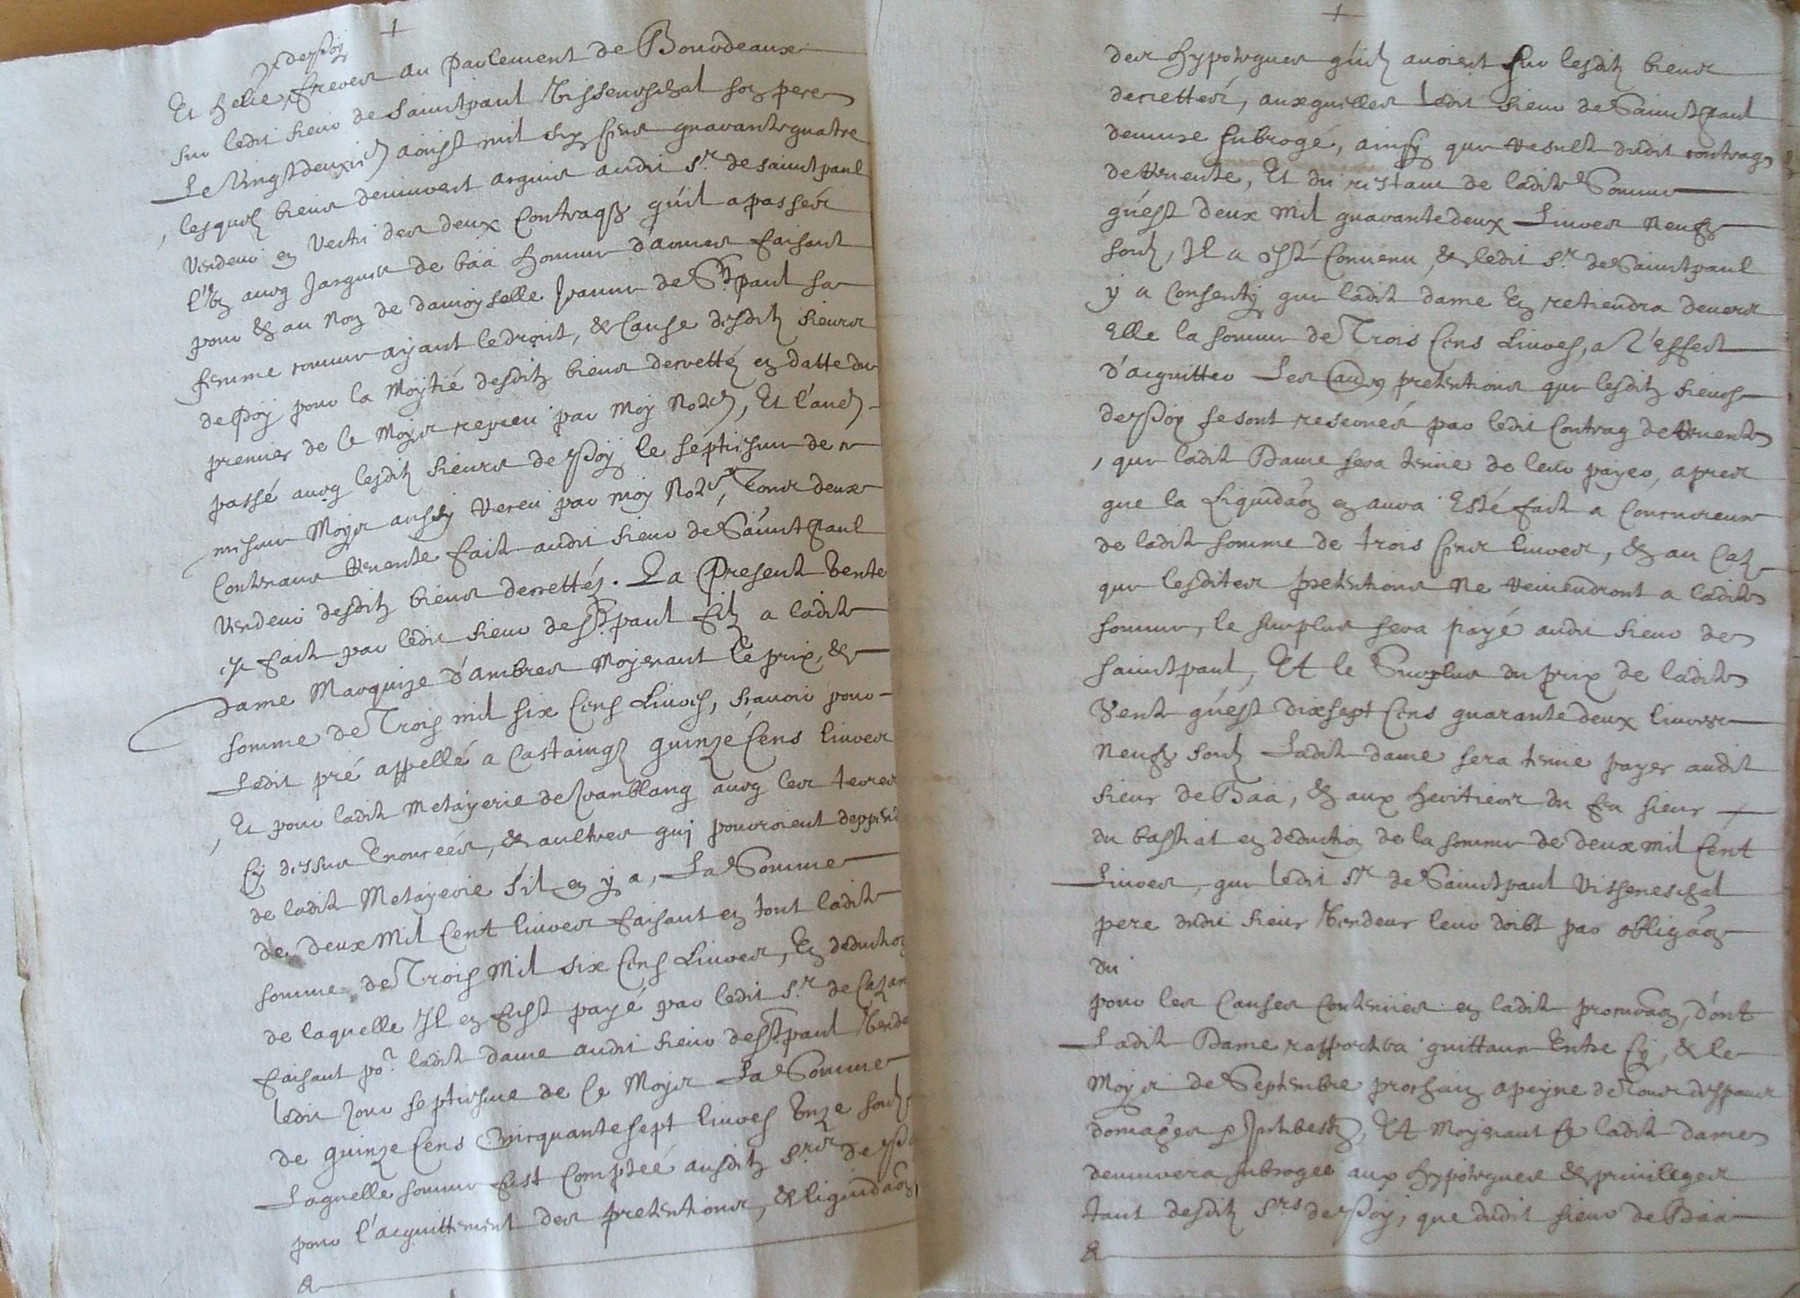 de Poÿ
Et helie freres au parlement de Bourdeaux
sur ledit sieur de Sainctpaul Visseneschal son pere
Le Vingtdeuxie aoust mil six cens quarante quatre
lesquelz biens demeurent acquis audit Sr. de sainctpaul
Vendeur en vertu des deux Contraqtz qu'il a passés
l'un avec Jacques de baa homme d'armes faisant
pour & au nom de damoyselle Jeanne de St paul sa
femme comme ayant le droit, & Cause desditz sieurs
de Poÿ pour la Moytié desditz biens decrettés en datte du
premier de Ce Moys receu par Moy Nore, Et l'autre
passé avec lesditz sieurs de Poÿ le septiesme de ce
mesme Moys aussy receu par moy Nore, Tous deux
Contenans Vente faite audit sieur de Sainctpaul
Vendeur desditz biens decrettés. La Presente Vente
est faite par ledit sieur de St paul filz a ladite
Dame Marquize d'ambres Moyenant le prix, &
somme de Trois mil six Cens Livres, scavoir pour
Ledit pré appellé a Castaingz quinze Cens livres
Et pour ladite Metayerie de Jeanblanq avec les terres
Cy dessus Enoncées, & aultres quy pourroient deppend
de ladite Metayerie s'il en y a, La Somme
de deux Mil Cent livres faisant en tout ladite
somme de Trois Mil six Cens Livres, En deduction
de laquelle Il en fust payé par ledit Sr. de
faisant por. ladite dame audit sieur de St paul Vende
ledit Jour septiesme de Ce Moys La Somme
de quinze Cens Cinquante sept livres Unze soulz
Laquelle somme fust Comptée ausditz Srs de Po
pour l'acquittement des pretentions, & liquidaon
des hypoteques qu'ilz avoient sur lesditz biens
decrettés, auxquelles ledit sieur de Sainctpaul
demure subrogé, ainsy que resulte dudit contraq
de Vente, Et du restant de ladite Somme
qu'est deux Mil quarante deux Livres Neuf
soulz, Il a esté Convenu, & ledit Sr. de Sainctpaul
y a Consenty que ladite dame En retiendra devers
Elle la somme de Trois Cens Livres, a l'effect
d'acquitter Les pretentions que lesditz sieurs
de Poÿ se sont reservés par ledit Contraq de Vente
, que ladite Dame sera tenue de leur payer, apres
que la Liquidaon en aura Esté faite a Concurence
de ladite somme de trois Cens livres, & au Cas
que lesdites pretentions Ne reviendront a ladite
somme, le surplus sera payé audit sieur de
sainctpaul, Et le Surplus du prix de ladite
Vente qu'est dixsept Cens quarante deux livres
Neuf soulz Ladite dame sera tenue payer audit
sieur de Baa, & aux heritiers du feu sieur
du bastiat en deduction de la somme de deux mil Cent
Livres, que ledit Sr. de Sainctpaul Visseneschal
pere dudit sieur Vendeur leur doibt par obligaon
du
pour les Causes Contenues en ladite , d'ont
Ladite Dame raportera quittance Entre Cy, & le
Moys de Septembre prochain apeyne de Tous despans
domages & Interestz, Et Moyenant Ce ladite dame
demurera subrogee aux hypoteques & privileges
tant desditz Srs de Poÿ, que dudit sieur de Baa